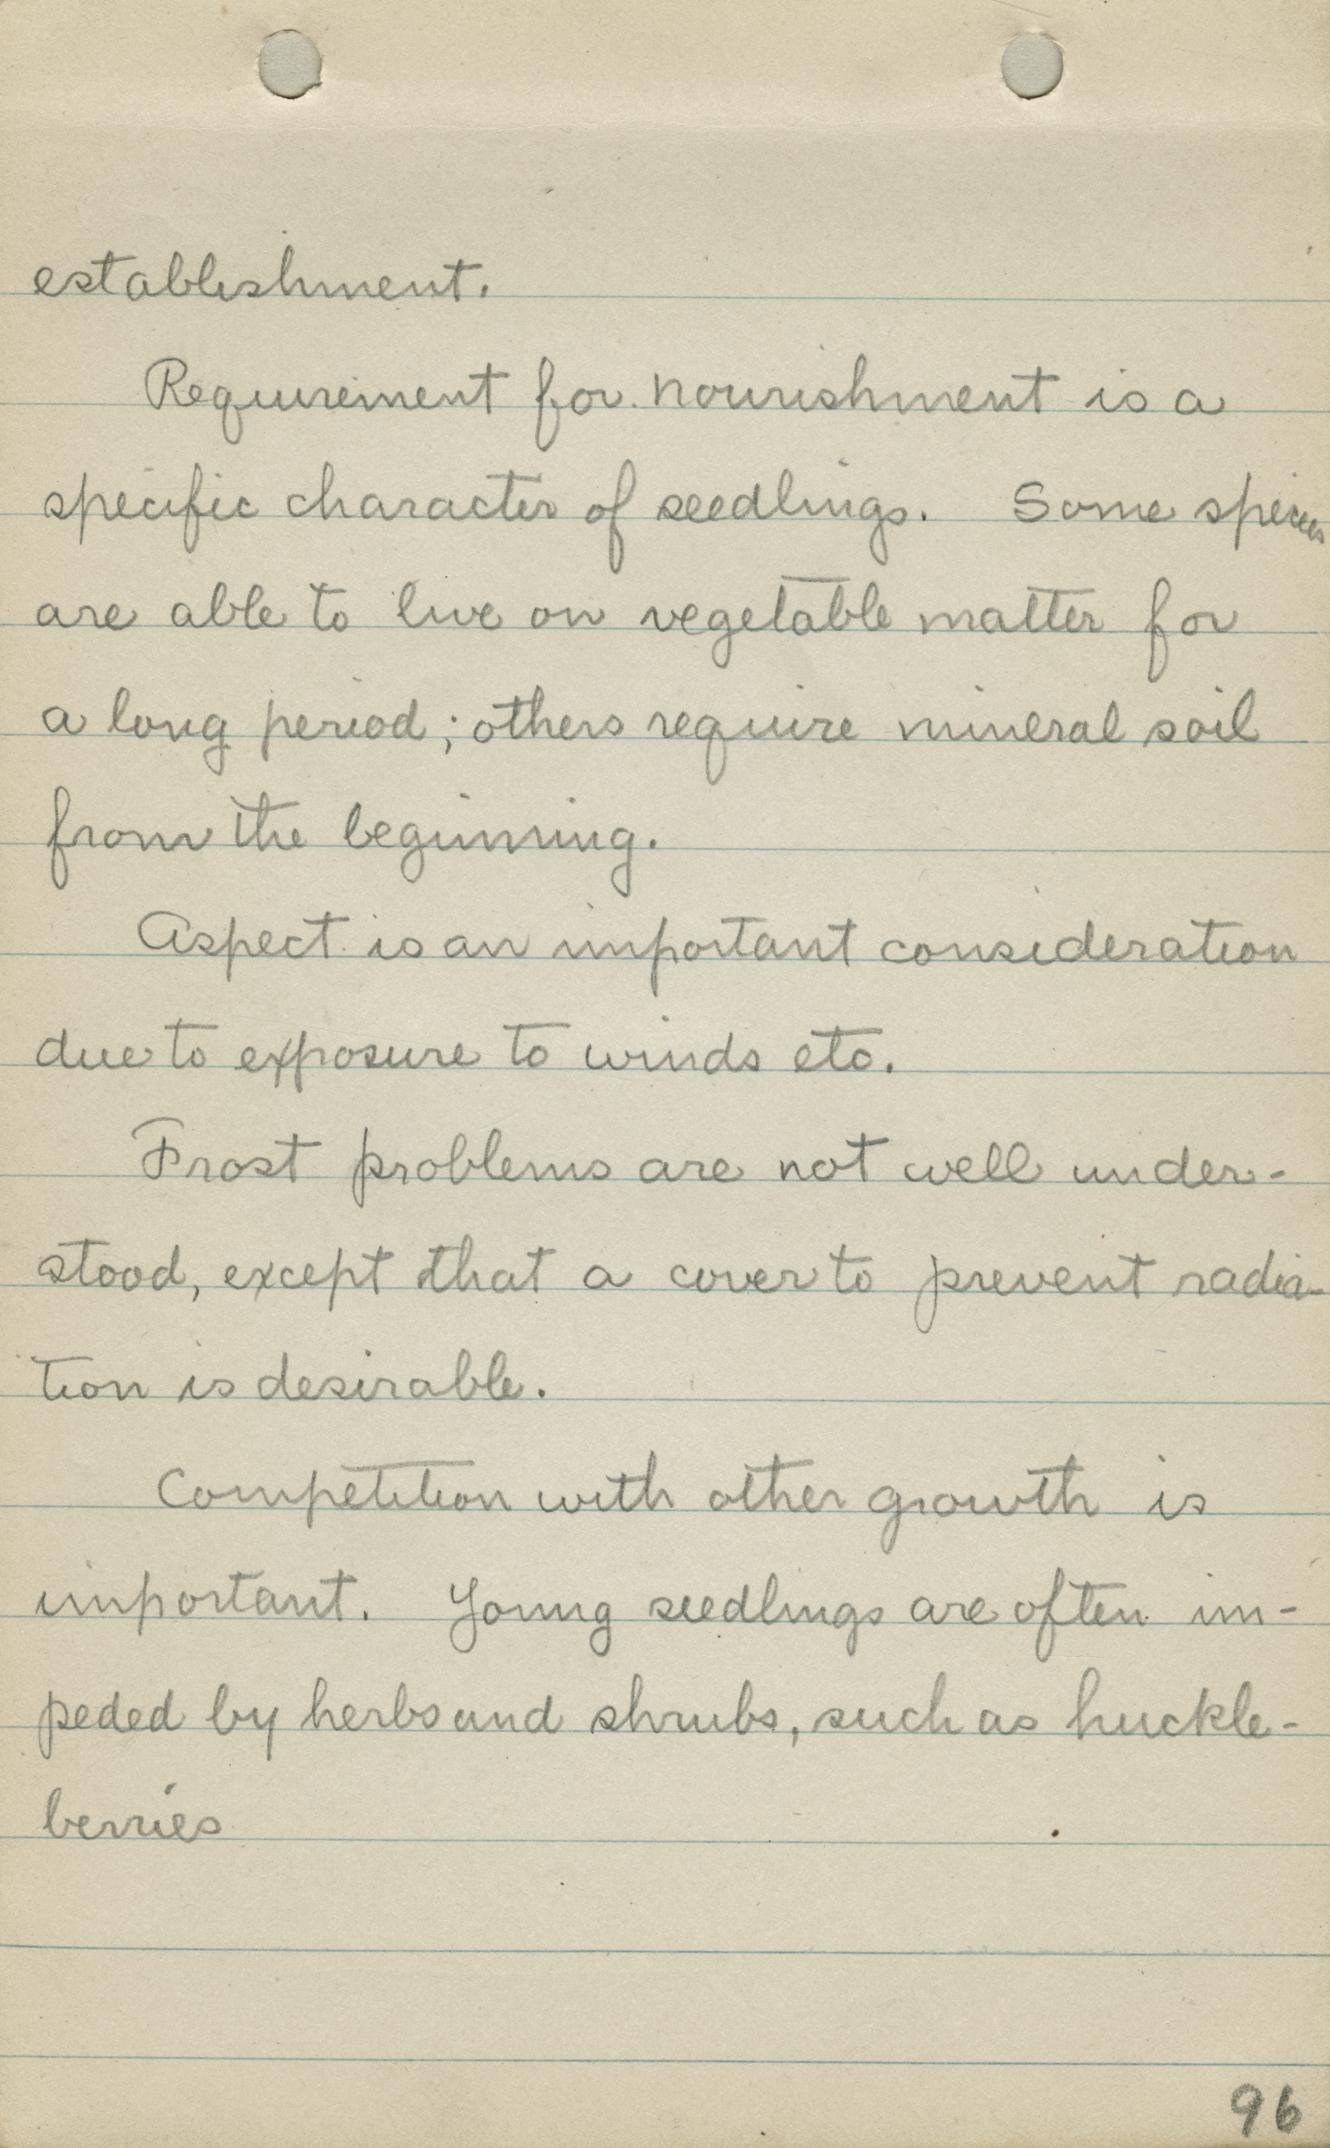 establishment.
Requirement for nourishment is a
specific character of seedlings. Some species
are able to live on vegetable matter for
a long period; others require mineral soil
from the beginning.
Aspect is an important consideration
due to exposure to winds etc.
Frost problems are not well under-
stood, except that a cover to prevent radia-
tion is desirable.
Competition with other growth is
important. Young seedlings are often im-
peded by herbs and shrubs, such as huckle-
berries
96